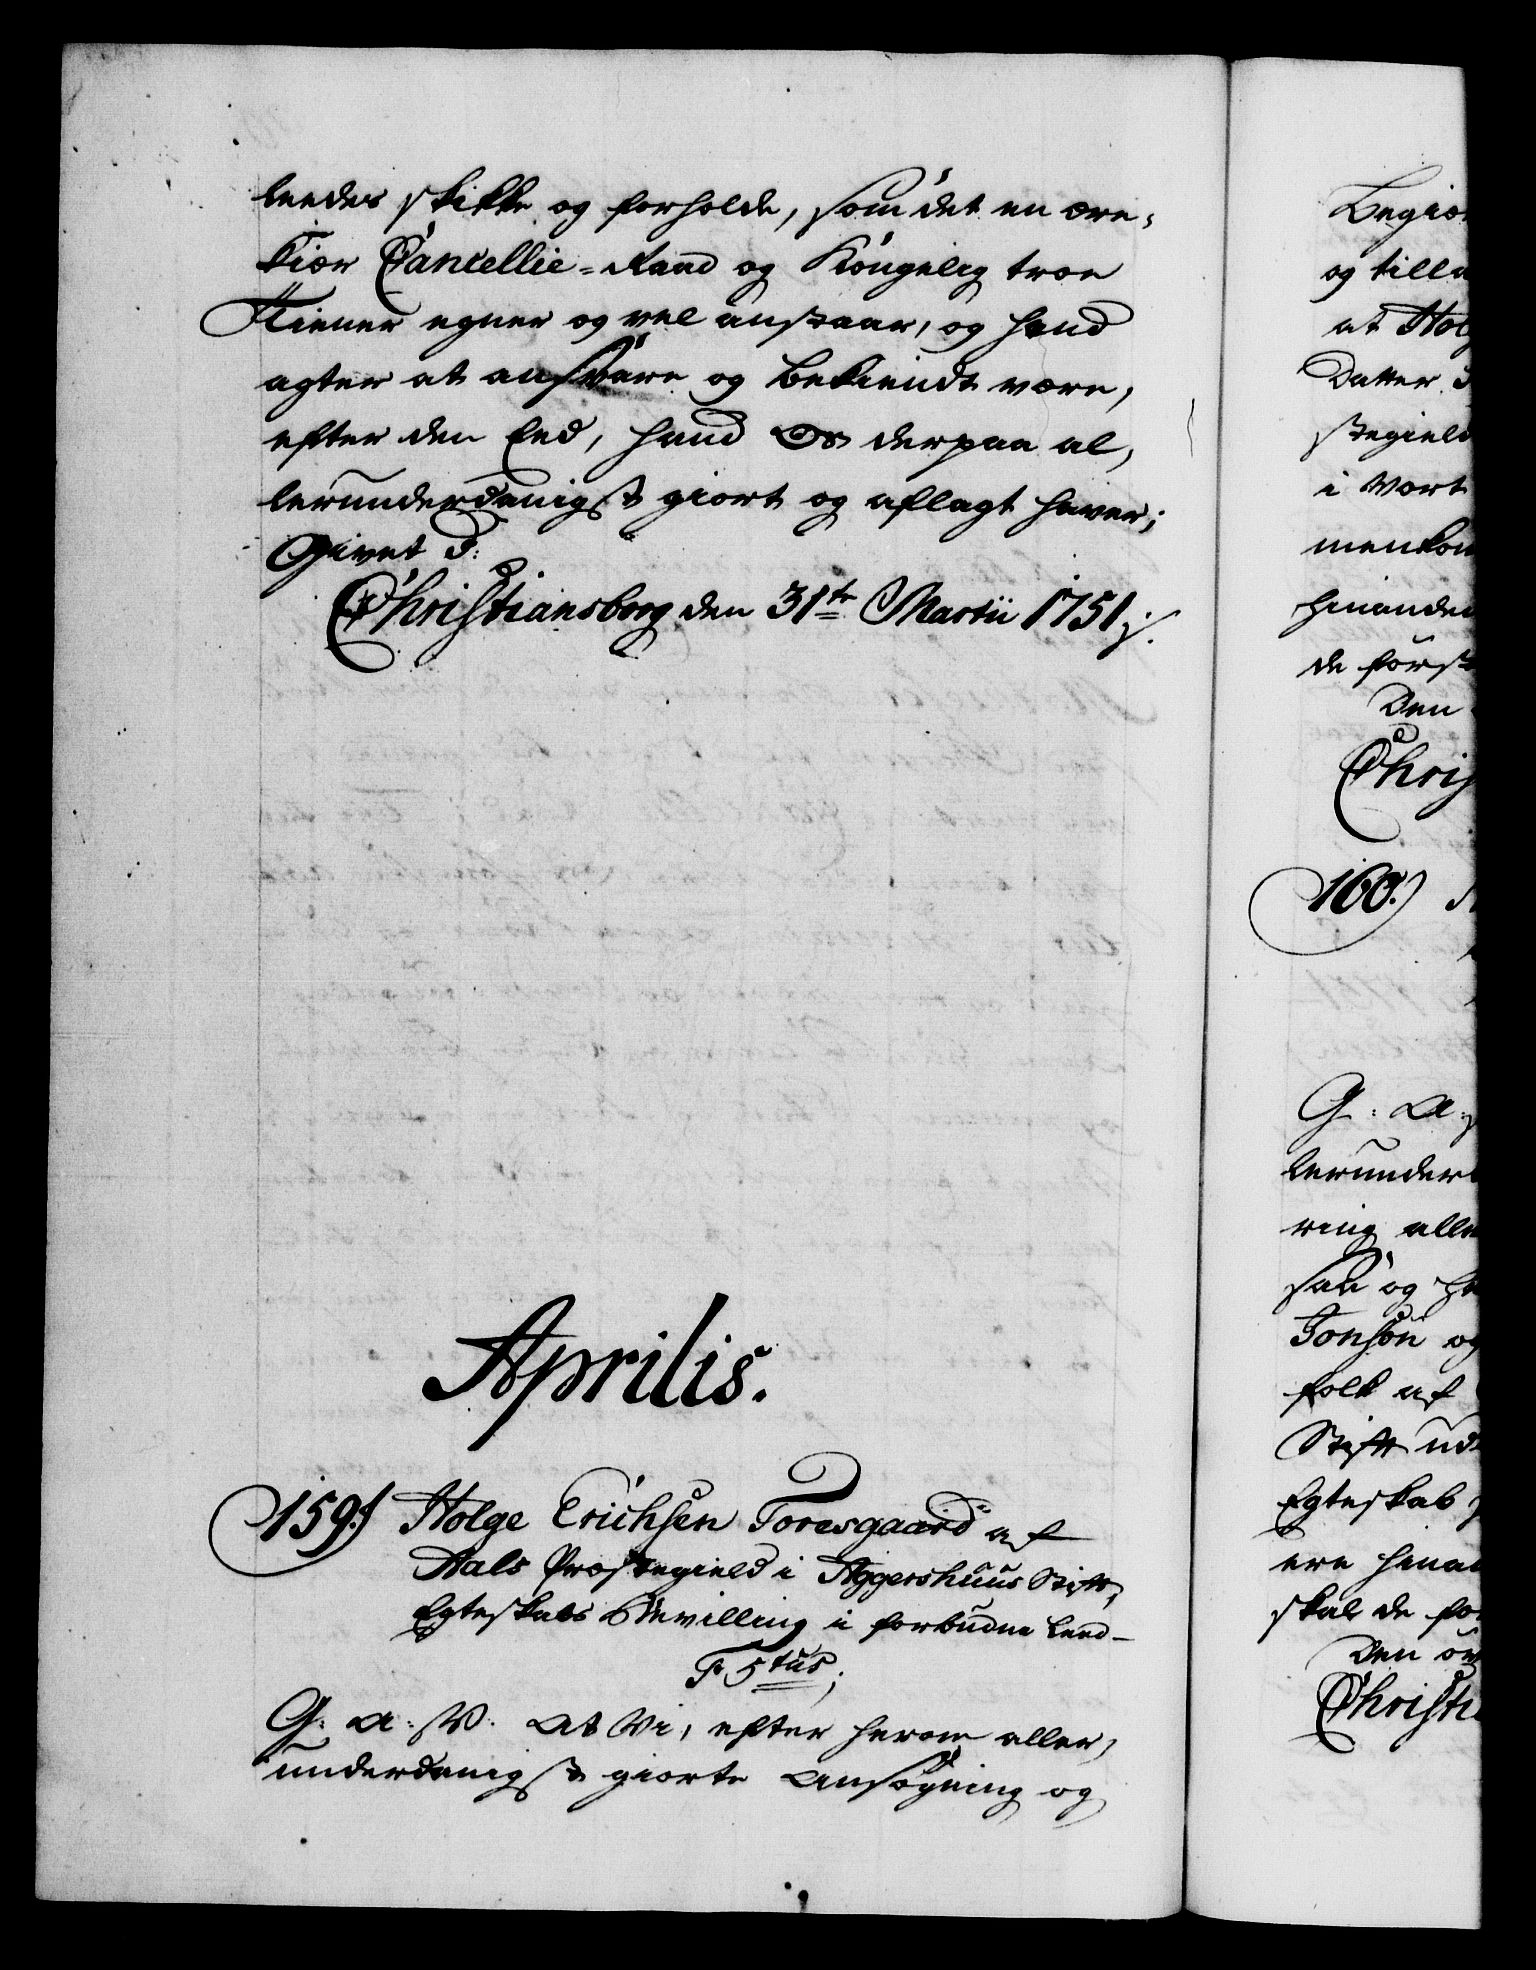 leedes skikke og forholde, som det en ære-
kiær Cancellie-Raad og Kongelig troe
Tiener egner og vel anstaar, og hand
agter at ansvare og bekiendt være,
efter den Eed, hand Os derpaa al,
lerunderdanigst giort og aflagt haver;
Givet p:
Christiansborg den 31te Martii 1751.
Aprilis.
159. Holge Erichsen Toresgaard af
Aals Præstegield i Aggershuus Stift,
Egteskabs Bevilling i forbudne Leed
F. 5tus;
G: A: V: At Vi, efter herom aller,
underdanigst giorte Ansøgning og
Begiæ
og tilla
at Hol
Datter
stegield
i Vort
menkom
hinanden
de først
Den
Chris
160.
G: A:
lerunder
ring alle
saa og
Jonson og
folk af
Stift ud
Egteskab
ere hinan
skal de fo
Den
Christi